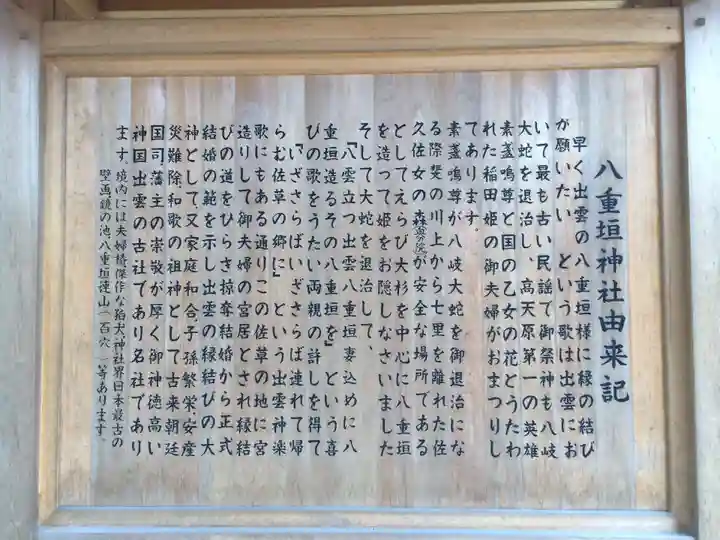 八重垣神社由来記
早く出雲の八重垣様に縁の結び
が願いたい という歌は出雲にお
いて最も古い民謡で御祭神も八岐
大蛇を退治し、高天原第一の英雄
素盞嗚尊と国の乙女の花とうたわ
れた稲田姫の御夫婦がおまつりし
てあります。
素盞嗚尊が八岐大蛇を御退治にな
る際斐の川上から七里を離れた佐
久佐女の森(奥の院)が安全な場所である
としてえらび大杉を中心に八重垣
を造って姫をお隠しなさいました
そして大蛇を退治して、
「八雲立つ出雲八重垣妻込めに八
重垣造るその八重垣を」という喜
びの歌をうたい両親の許しを得て
「いざさらばいざさらば連れて帰
らむ佐草の郷に」という出雲神楽
歌にもある通りこの佐草の地に宮
造りして御夫婦の宮居とされ縁結
びの道をひらき掠奪結婚から正式
結婚の範を示し出雲の縁結びの大
神として、又家庭和合子孫繁栄、安産
災難除、和歌の祖神として古来朝廷
国司藩主の崇敬が厚く御神徳高い
神国出雲の古社であり名社であり
ます。境内には夫婦椿傑作な狛犬神社界日本最古の
壁画鏡の池、八重垣連山(百穴)等あります。